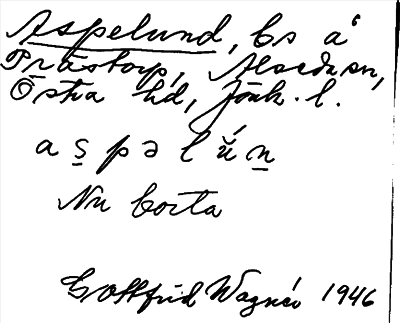 Aspelund, bs å
Prästorp, Alseda sn,
Östra hd, Jönk. l.
a s̱ p ə l ŭ́ ṉ
Nu borta
Gottfrid Wagnér 1946